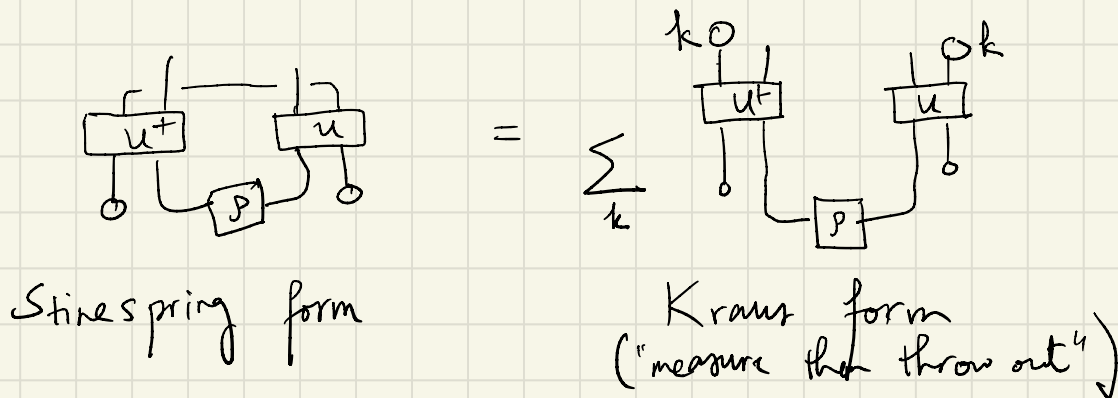 k k
U† U U† U
= Σ
k
ρ ρ
Stinespring form Kraus form
("measure then throw out")